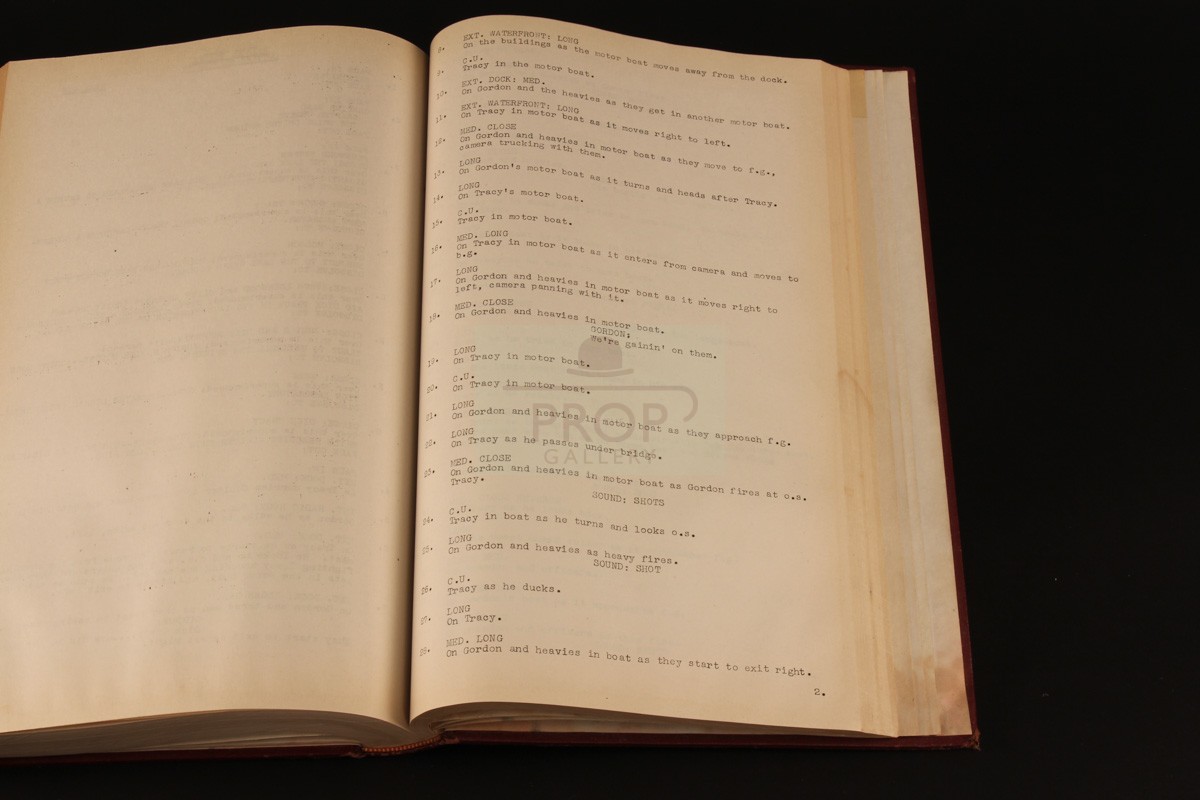 8. EXT. WATERFRONT: LONG
On the buildings as the motor boat moves away from the dock.
9. C.U.
Tracy in the motor boat.
10. EXT. DOCK: MED.
On Gordon and the heavies as they get in another motor boat.
11. EXT. WATERFRONT: LONG
On Tracy in motor boat as it moves right to left.
12. MED. CLOSE
On Gordon and heavies in motor boat as they move to f.g.,
camera trucking with them.
13. LONG
On Gordon's motor boat as it turns and heads after Tracy.
14. LONG
On Tracy's motor boat.
15. C.U.
Tracy in motor boat.
16. MED. LONG
On Tracy in motor boat as it enters from camera and moves to
b.g.
17. LONG
On Gordon and heavies in motor boat as it moves right to
left, camera panning with it.
18. MED. CLOSE
On Gordon and heavies in motor boat.
GORDON:
We're gainin' on them.
19. LONG
On Tracy in motor boat.
20. C.U.
On Tracy in motor boat.
21. LONG
On Gordon and heavies in motor boat as they approach f.g.
22. LONG
On Tracy as he passes under bridge.
23. MED. CLOSE
On Gordon and heavies in motor boat as Gordon fires at o.s.
Tracy.
SOUND: SHOTS
24. C.U.
Tracy in boat as he turns and looks o.s.
25. LONG
On Gordon and heavies as heavy fires.
SOUND: SHOT
26. C.U.
Tracy as he ducks.
27. LONG
On Tracy.
28. MED. LONG
On Gordon and heavies in boat as they start to exit right.
2.
PROP
GALLERY